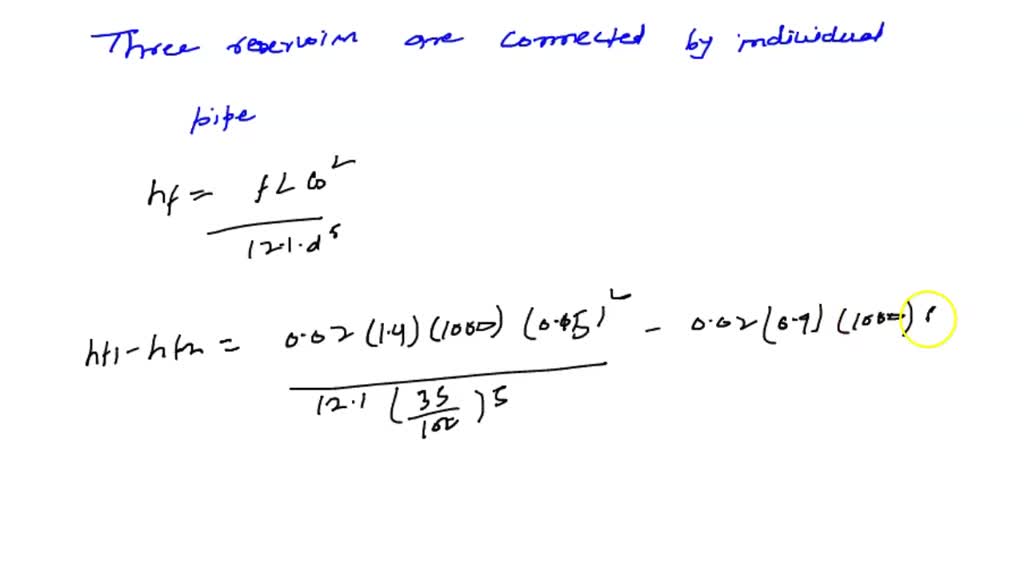 Three reservoirs are connected by individual
pipe
hf = fLQ²
12.1.d⁵
hf1 - hf2 = 0.02 (1.4) (1000) (0.05)² - 0.02 (0.9) (1000)
12.1 (35/100)5